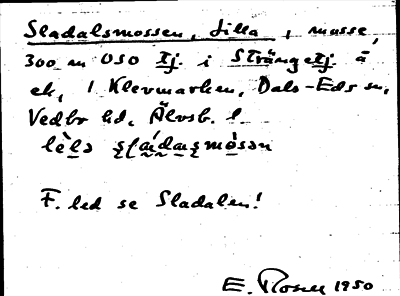 Sladalsmossen, Lilla, mosse,
300 m OSO Tj. i Strängetj. å
ek. 1 Klevmarken, Dals-Eds sn,
Vedbo hd, Älvsb. l.
F. led se Sladalen!
E. Rosell 1950